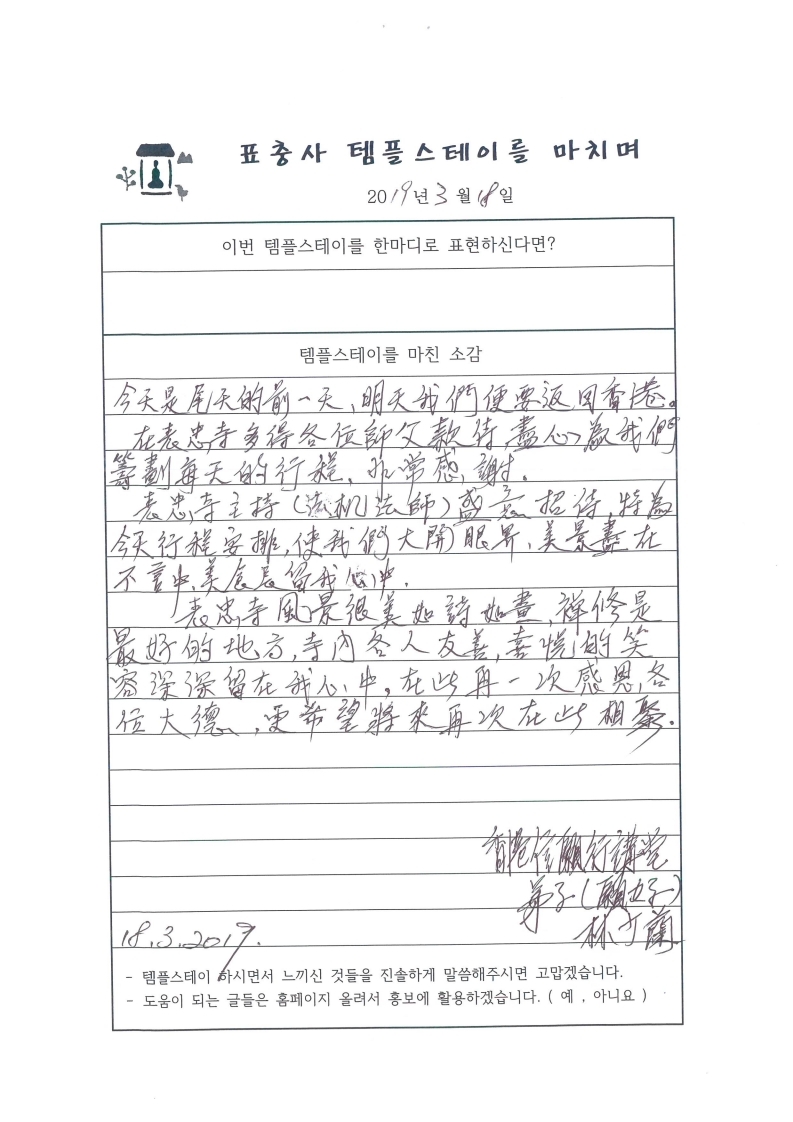 표충사 템플스테이를 마치며
2019년 3월 18일
이번 템플스테이를 한마디로 표현하신다면?
템플스테이를 마친 소감
今天是尾天的前一天，明天我們便要返回香港。
在表忠寺多得各位師父款待盡心為我們
籌劃每天的行程，非常感謝。
表忠寺主持（法机法師）盛意招待，特為
今天行程安排，使我們大開眼界，美景盡在
不言中，美食長留我心中。
表忠寺風景很美如詩如畫，禪修是
最好的地方，寺內各人友善，喜悅的笑
容深深留在我心中，在此再一次感恩各
位大德，更希望將來再次在此相聚。
香港信願行講堂
弟子（願好）
林少蘭
18.3.2019.
- 템플스테이 하시면서 느끼신 것들을 진솔하게 말씀해주시면 고맙겠습니다.
- 도움이 되는 글들은 홈페이지 올려서 홍보에 활용하겠습니다. ( 예 , 아니요 )